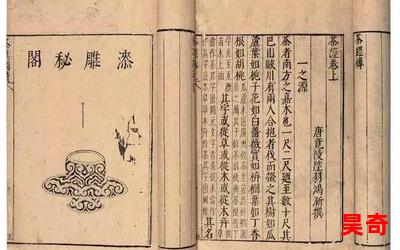 茶經傳
茶經卷上
唐竟陵陸羽鴻漸撰
一之源
茶者南方之嘉木也一尺二尺迺至數十尺其
巴山峽川有兩人合抱者伐而掇之其樹如瓜
蘆葉如梔子花如白薔薇實如栟櫚葉如丁香
根如胡桃
苗木上抽 其字或從草或從木或草木并
其名
漆雕秘閣
昊奇